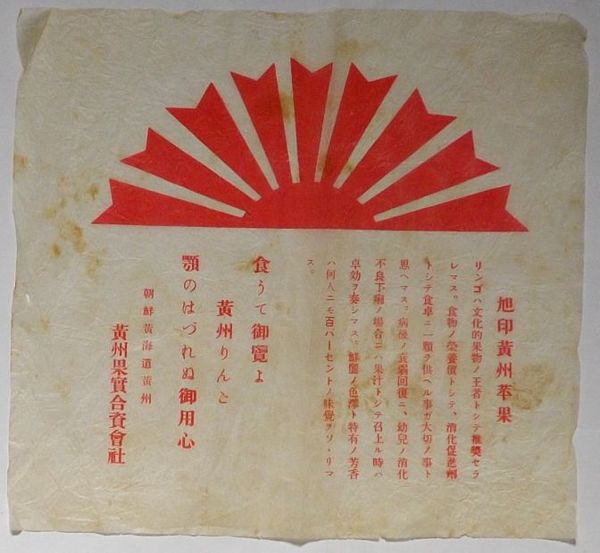 旭印黃州苹果
リンゴハ文化的果物ノ王者トシテ推奬セラ
レマス。食物ノ榮養價トシテ、消化促進劑
トシテ食卓ニ一顆ヲ供ヘル事ガ大切ノ事ト
思ヘマス。病後ノ衰弱回復ニ、幼兒ノ消化
不良下痢ノ場合ニハ果汁トシテ召上ル時ハ
卓効ヲ奏シマス。鮮麗ノ色澤ト特有ノ芳香
ハ何人ニモ百パーセントノ味覺ヲソヽリマ
ス。
食うて御覽よ
黃州りんご
顎のはづれぬ御用心
朝鮮黃海道黃州
黃州果實合資會社